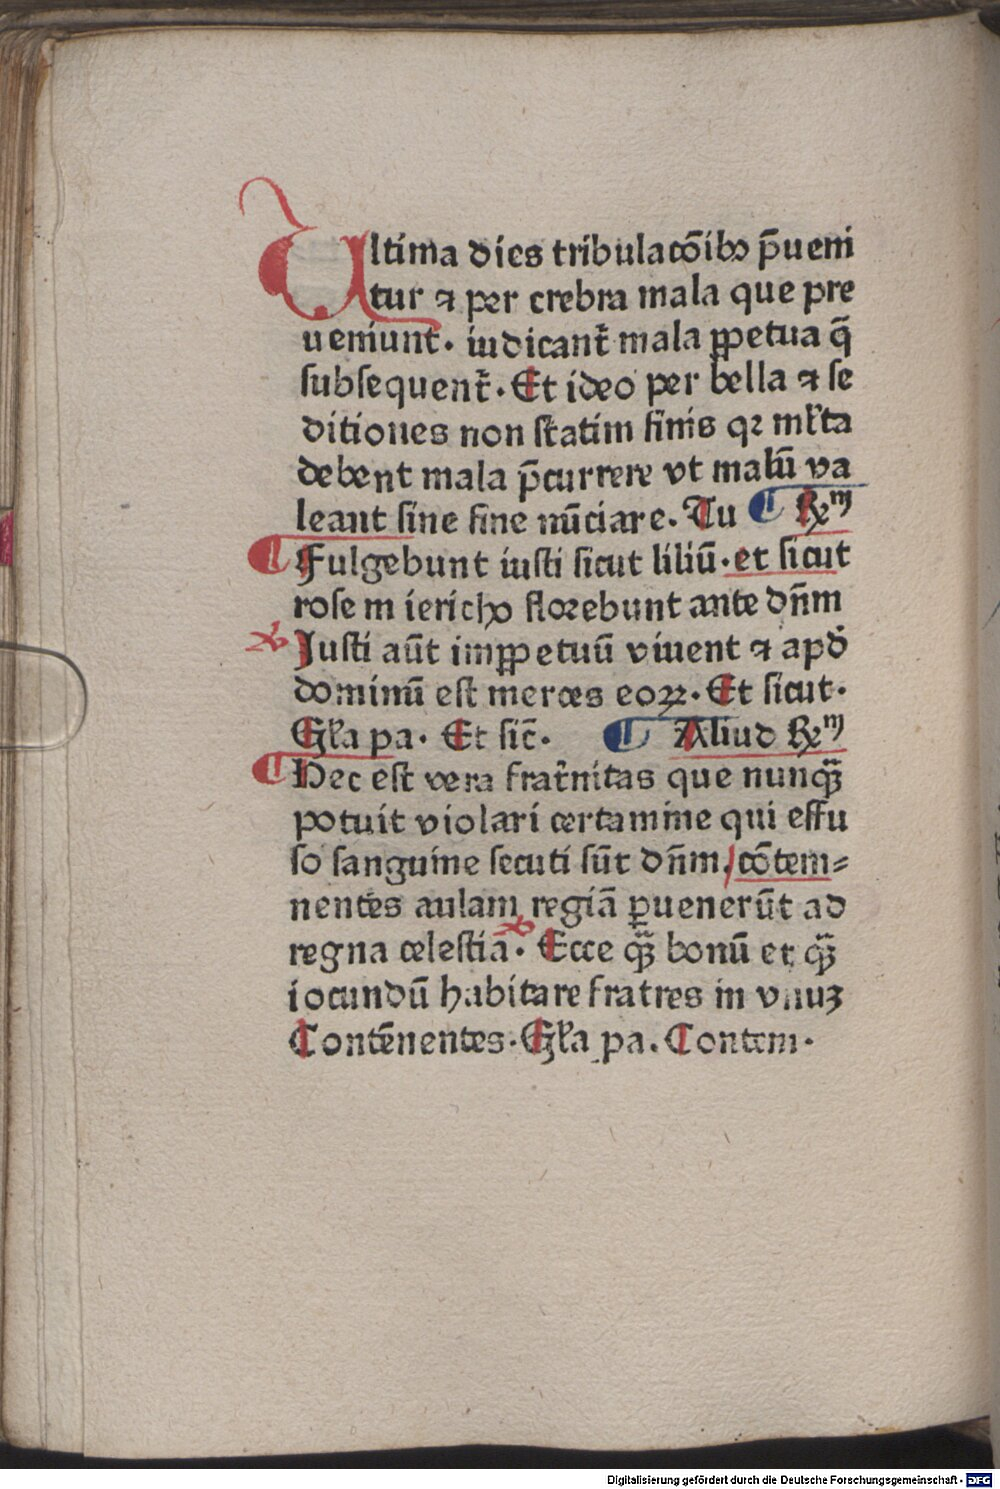 Ultima dies tribulacōibꝫ p̄ueni
tur ⁊ per crebra mala que pre
ueniunt. iudicant᷑ mala ꝑpetua q̄
subsequent᷑. Et ideo per bella ⁊ se
ditiones non statim finis qꝛ ml᷑ta
debent mala p̄currere vt malū va
leant sine fine nūciare. Tu ¶ Rꝫm
¶ Fulgebunt iusti sicut liliū. et sicut
rose in iericho florebunt ante dn̄m
Justi aūt imꝑpetuū viuent ⁊ apd̕
dominū est merces eoꝝ. Et sicut.
Gl᷑a pa. Et sic̄. ¶ Aliud Rꝫm
¶ Hec est vera frat᷑nitas que nunqꝫ̄
potuit violari certamine qui effu
so sanguine secuti sūt dn̄m/ cōtem-
nentes aulam regiā ꝑuenerūt ad
regna celestia. Ecce qꝫ̄ bonū et qꝫ̄
iocundū habitare fratres in vnuꝫ
Contēnentes. Gl᷑a pa. Contem.
Digitalisierung gefördert durch die Deutsche Forschungsgemeinschaft - DFG